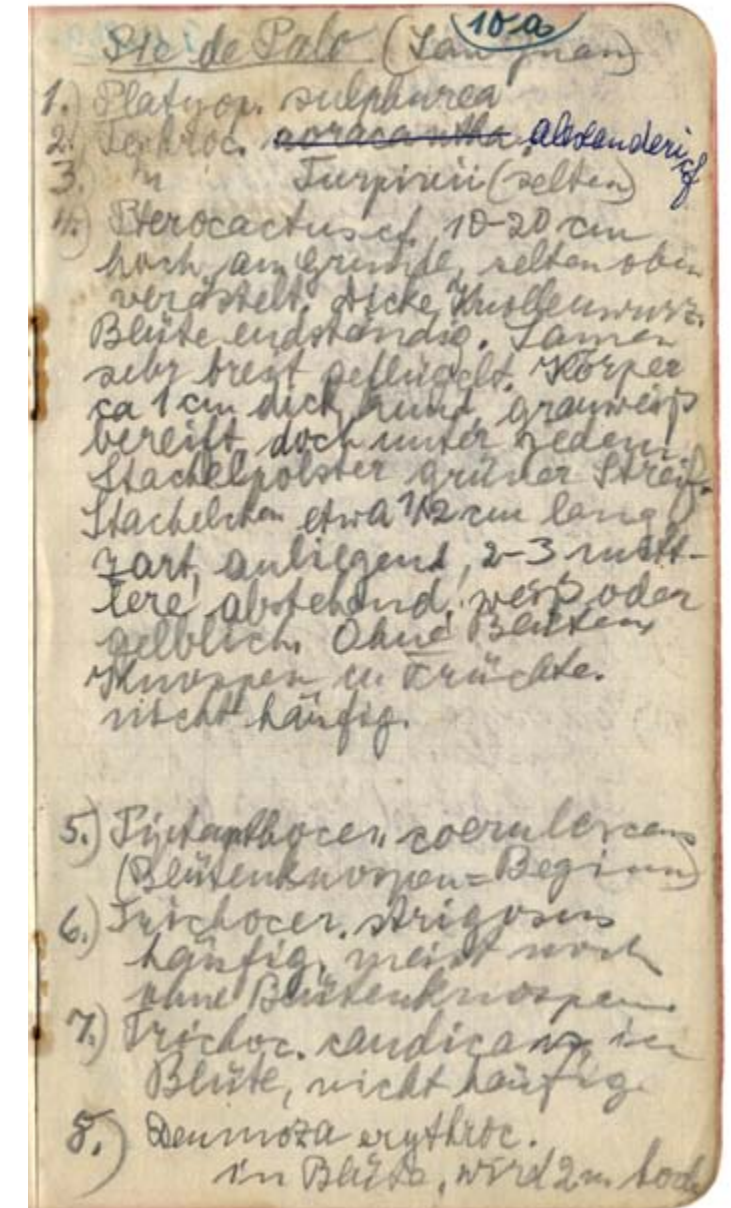 10a
Pie de Palo (San Juan)
1.) Platyop. sulphurea
2. Tephroc. aoracantha alexanderi cf
3. " Turpinii (selten)
4.) Pterocactus cf. 10-20 cm
hoch, am Grunde, selten oben
verästelt. Dicke Knollenwurz.
Blüte endständig. Samen
sehr breit geflügelt. Körper
ca 1 cm dick, rund, grauweiß
bereift, doch unter jedem
Stachelpolster grüner Streif.
Stachelchen etwa 1/2 cm lang,
zart, anliegend, 2-3 mitt-
lere abstehend, weiß oder
gelblich. Ohne Blüten,
Knospen u. Früchte.
nicht häufig.
5.) Tristanthocer. coerulescens
(Blütenknospen = Beginn)
6.) Trichocer. strigosus
häufig, meist noch
ohne Blütenknospen
7.) Trichoc. candicans, in
Blüte, nicht häufig.
8.) Denmoza erythroc.
in Blüte, wird 2 m hoch